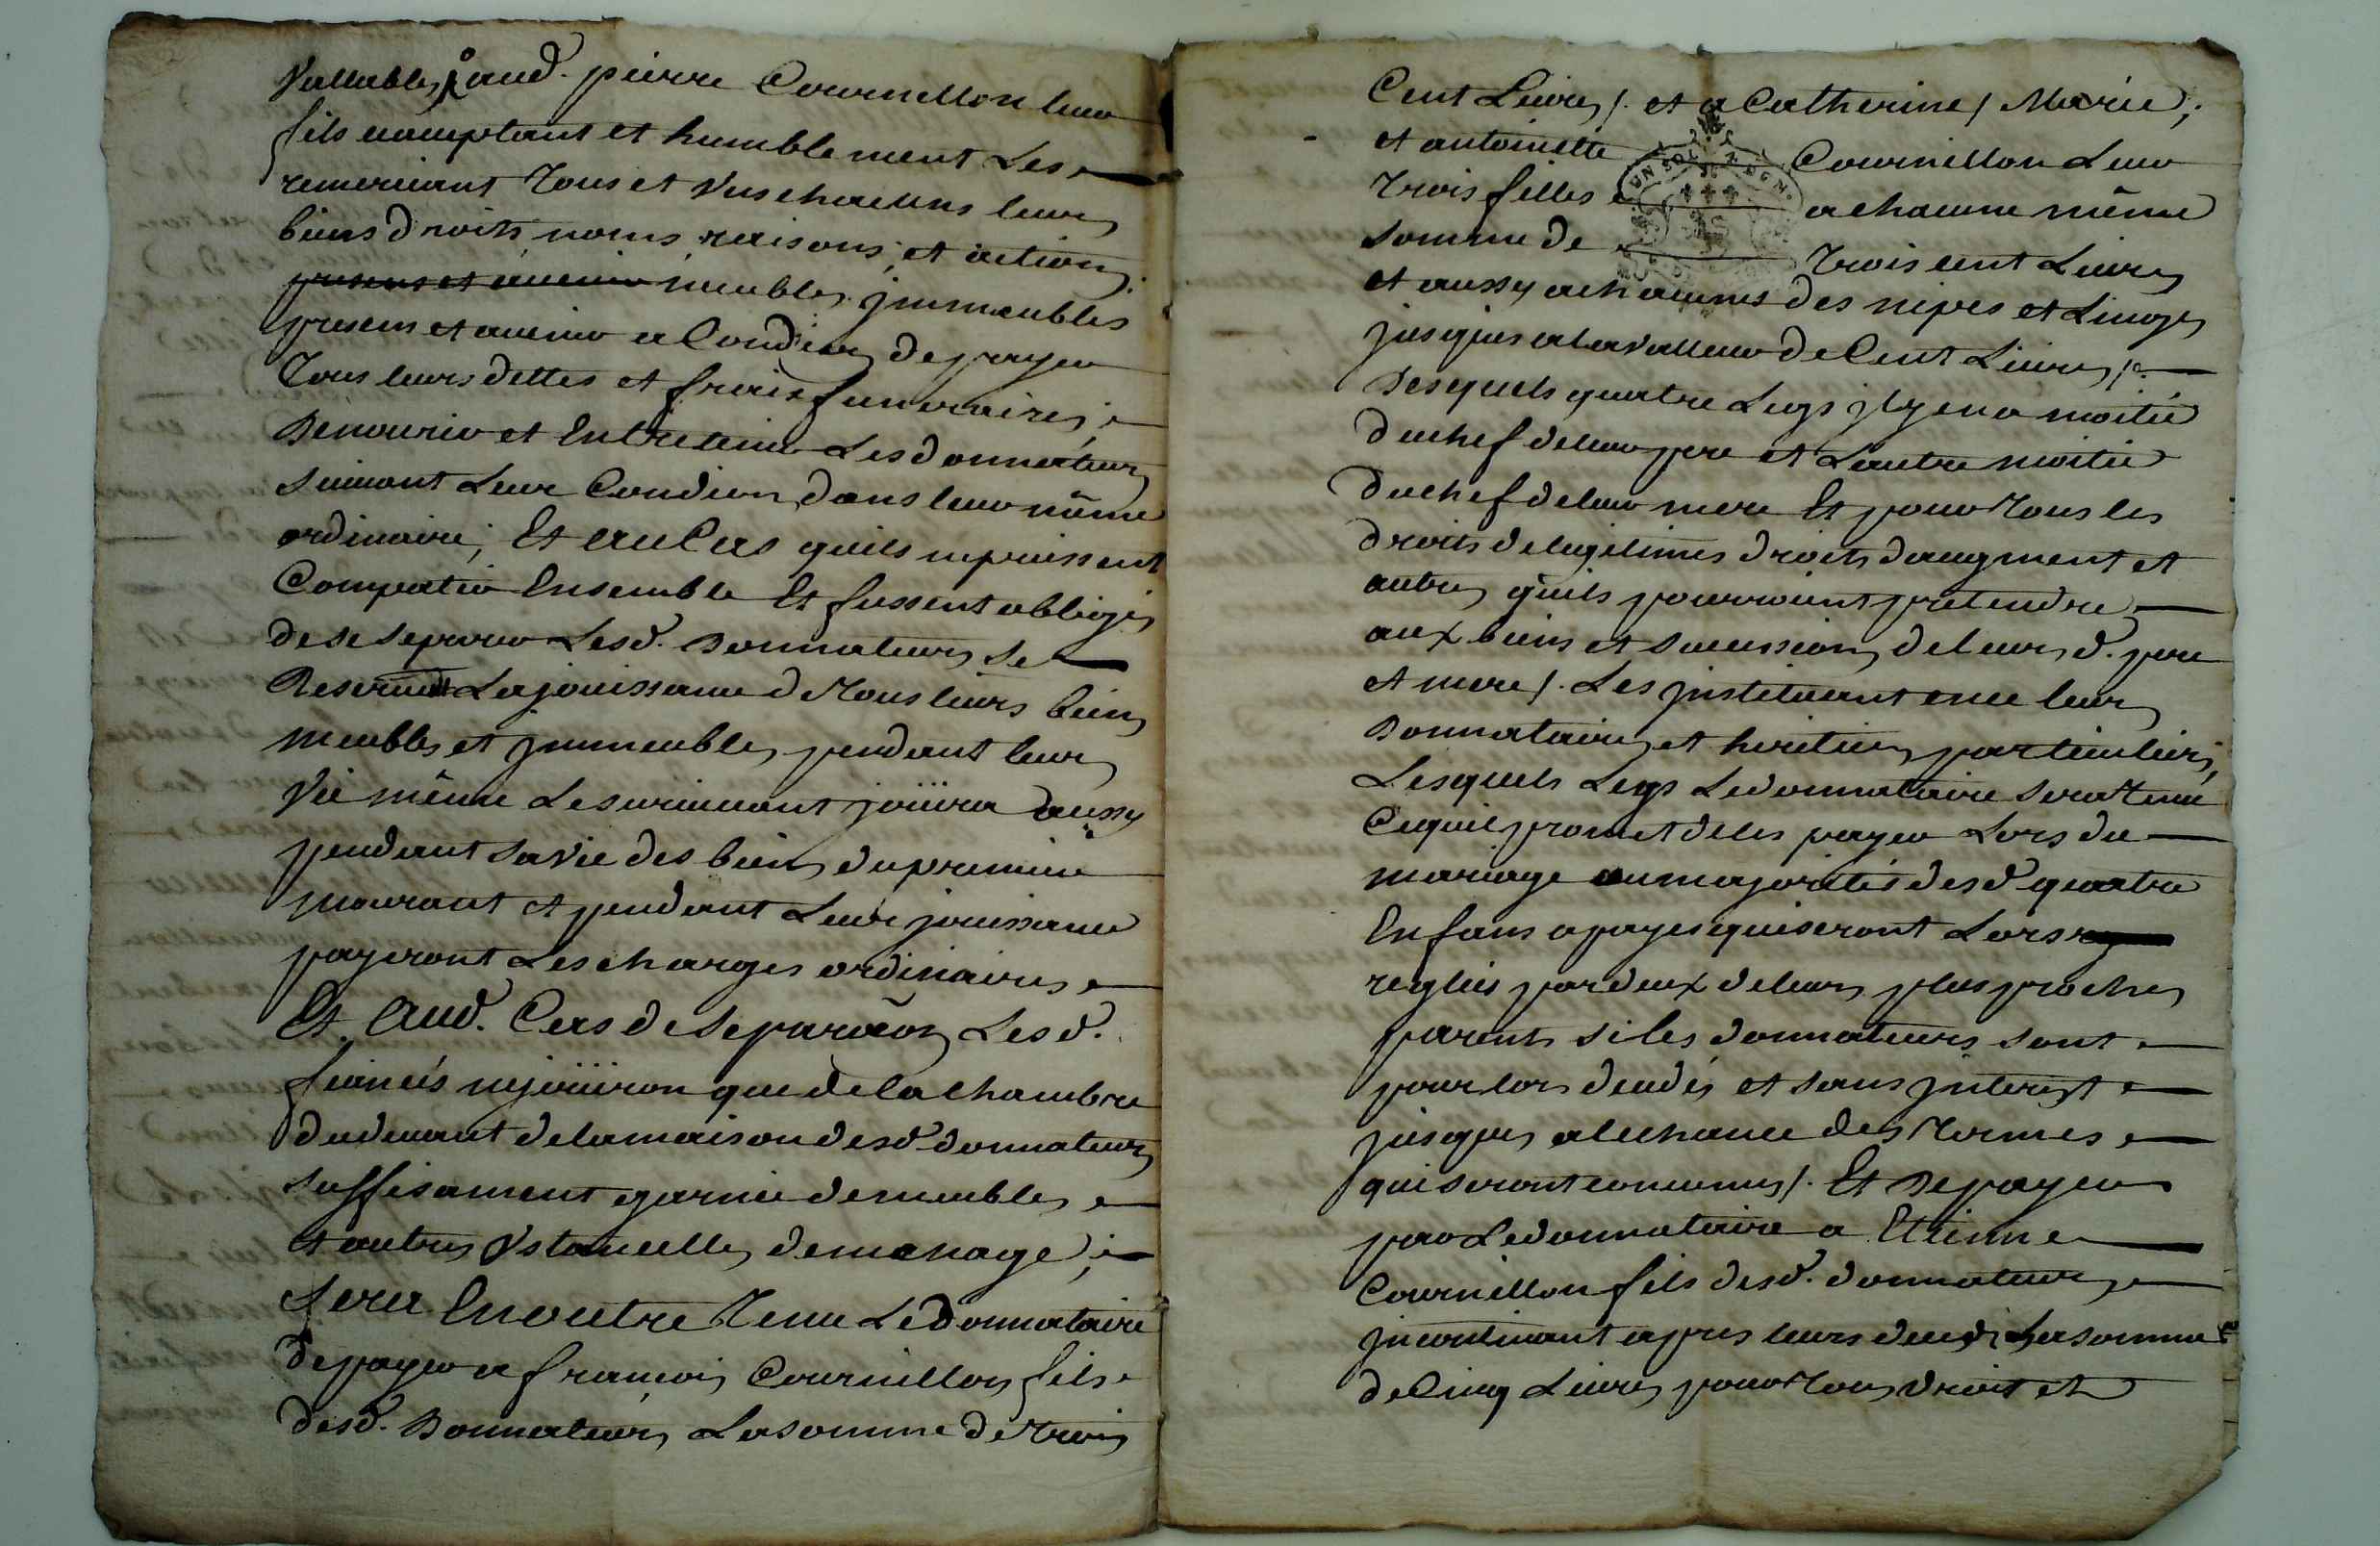 Vallables, aud. pierre Cournillon leur
fils acceptant et humblement Les
remerciant Tous et Vns chacuns leurs
biens droits noms, raisons, et actions
presens et avenir meubles jmmeubles
presens et avenir a Condion de payer
Tous leurs dettes et fraix funeraires,
De nourir et Entretenir Les donnateurs
suivant Leur Condion dans leur même
ordinaire; Et au Cas quils ne puissent
Compatir Ensemble Et fussent obligés
de se separer Lesd. Donnateurs se
Reservent La jouissance de Tous leurs biens
meubles et jmmeubles pendant leur
Vie même Le survivant joüira aussy
pendant sa vie des biens du premier
mourant et pendant Leur jouissance
payeront Les charges ordinaires
Et Aud. Cas de separãon Lesd.
fiancés ne joüiron que de la chambre
du devant de la maison desd. donnateurs
suffisament garnie de meubles
et autres Vstancilles demenage,
sera En outre Tenu Le Donnataire
de payer a francois Cournillon fils
desd. Donnateurs La somme de Trois
Cent Livres /. et a Catherine / Marie,
et antoinette Cournillon Leur
Trois filles a chacune même
UN SOL
somme de Trois cent Livres
et aussy a chacunes des nipes et Linges
jusques a la valleur de Cent Livres /.
Desquels quatre Legs jl y en a moitié
du chef de leur pere et Lautre moitié
du chef de leur mere Et pour Tous les
droits de legitimes droits daugment et
autres quils pourroient pretendre
aux biens et succession de leurs d. pere
et mere /. Les jnstituant en ce leur
Donnataires et heritiers particuliers,
Lesquels Legs Le donnataire sera Tenu
Ce quil promet de les payer Lors du
mariage ou majorités desd. quatre
Enfans a payes qui seront Lors
reglés par deux de leurs plus proches
parents si les donnateurs sont
pour lors decedés et sans jnterest
jusques a lechance des Termes
qui seront convenus /. Et De payer
par Le donnataire a Etienne
Cournillon fils desd. donnateurs
jncontinant apres leurs deces La somme
de Cinq Livres pour Tous droit et